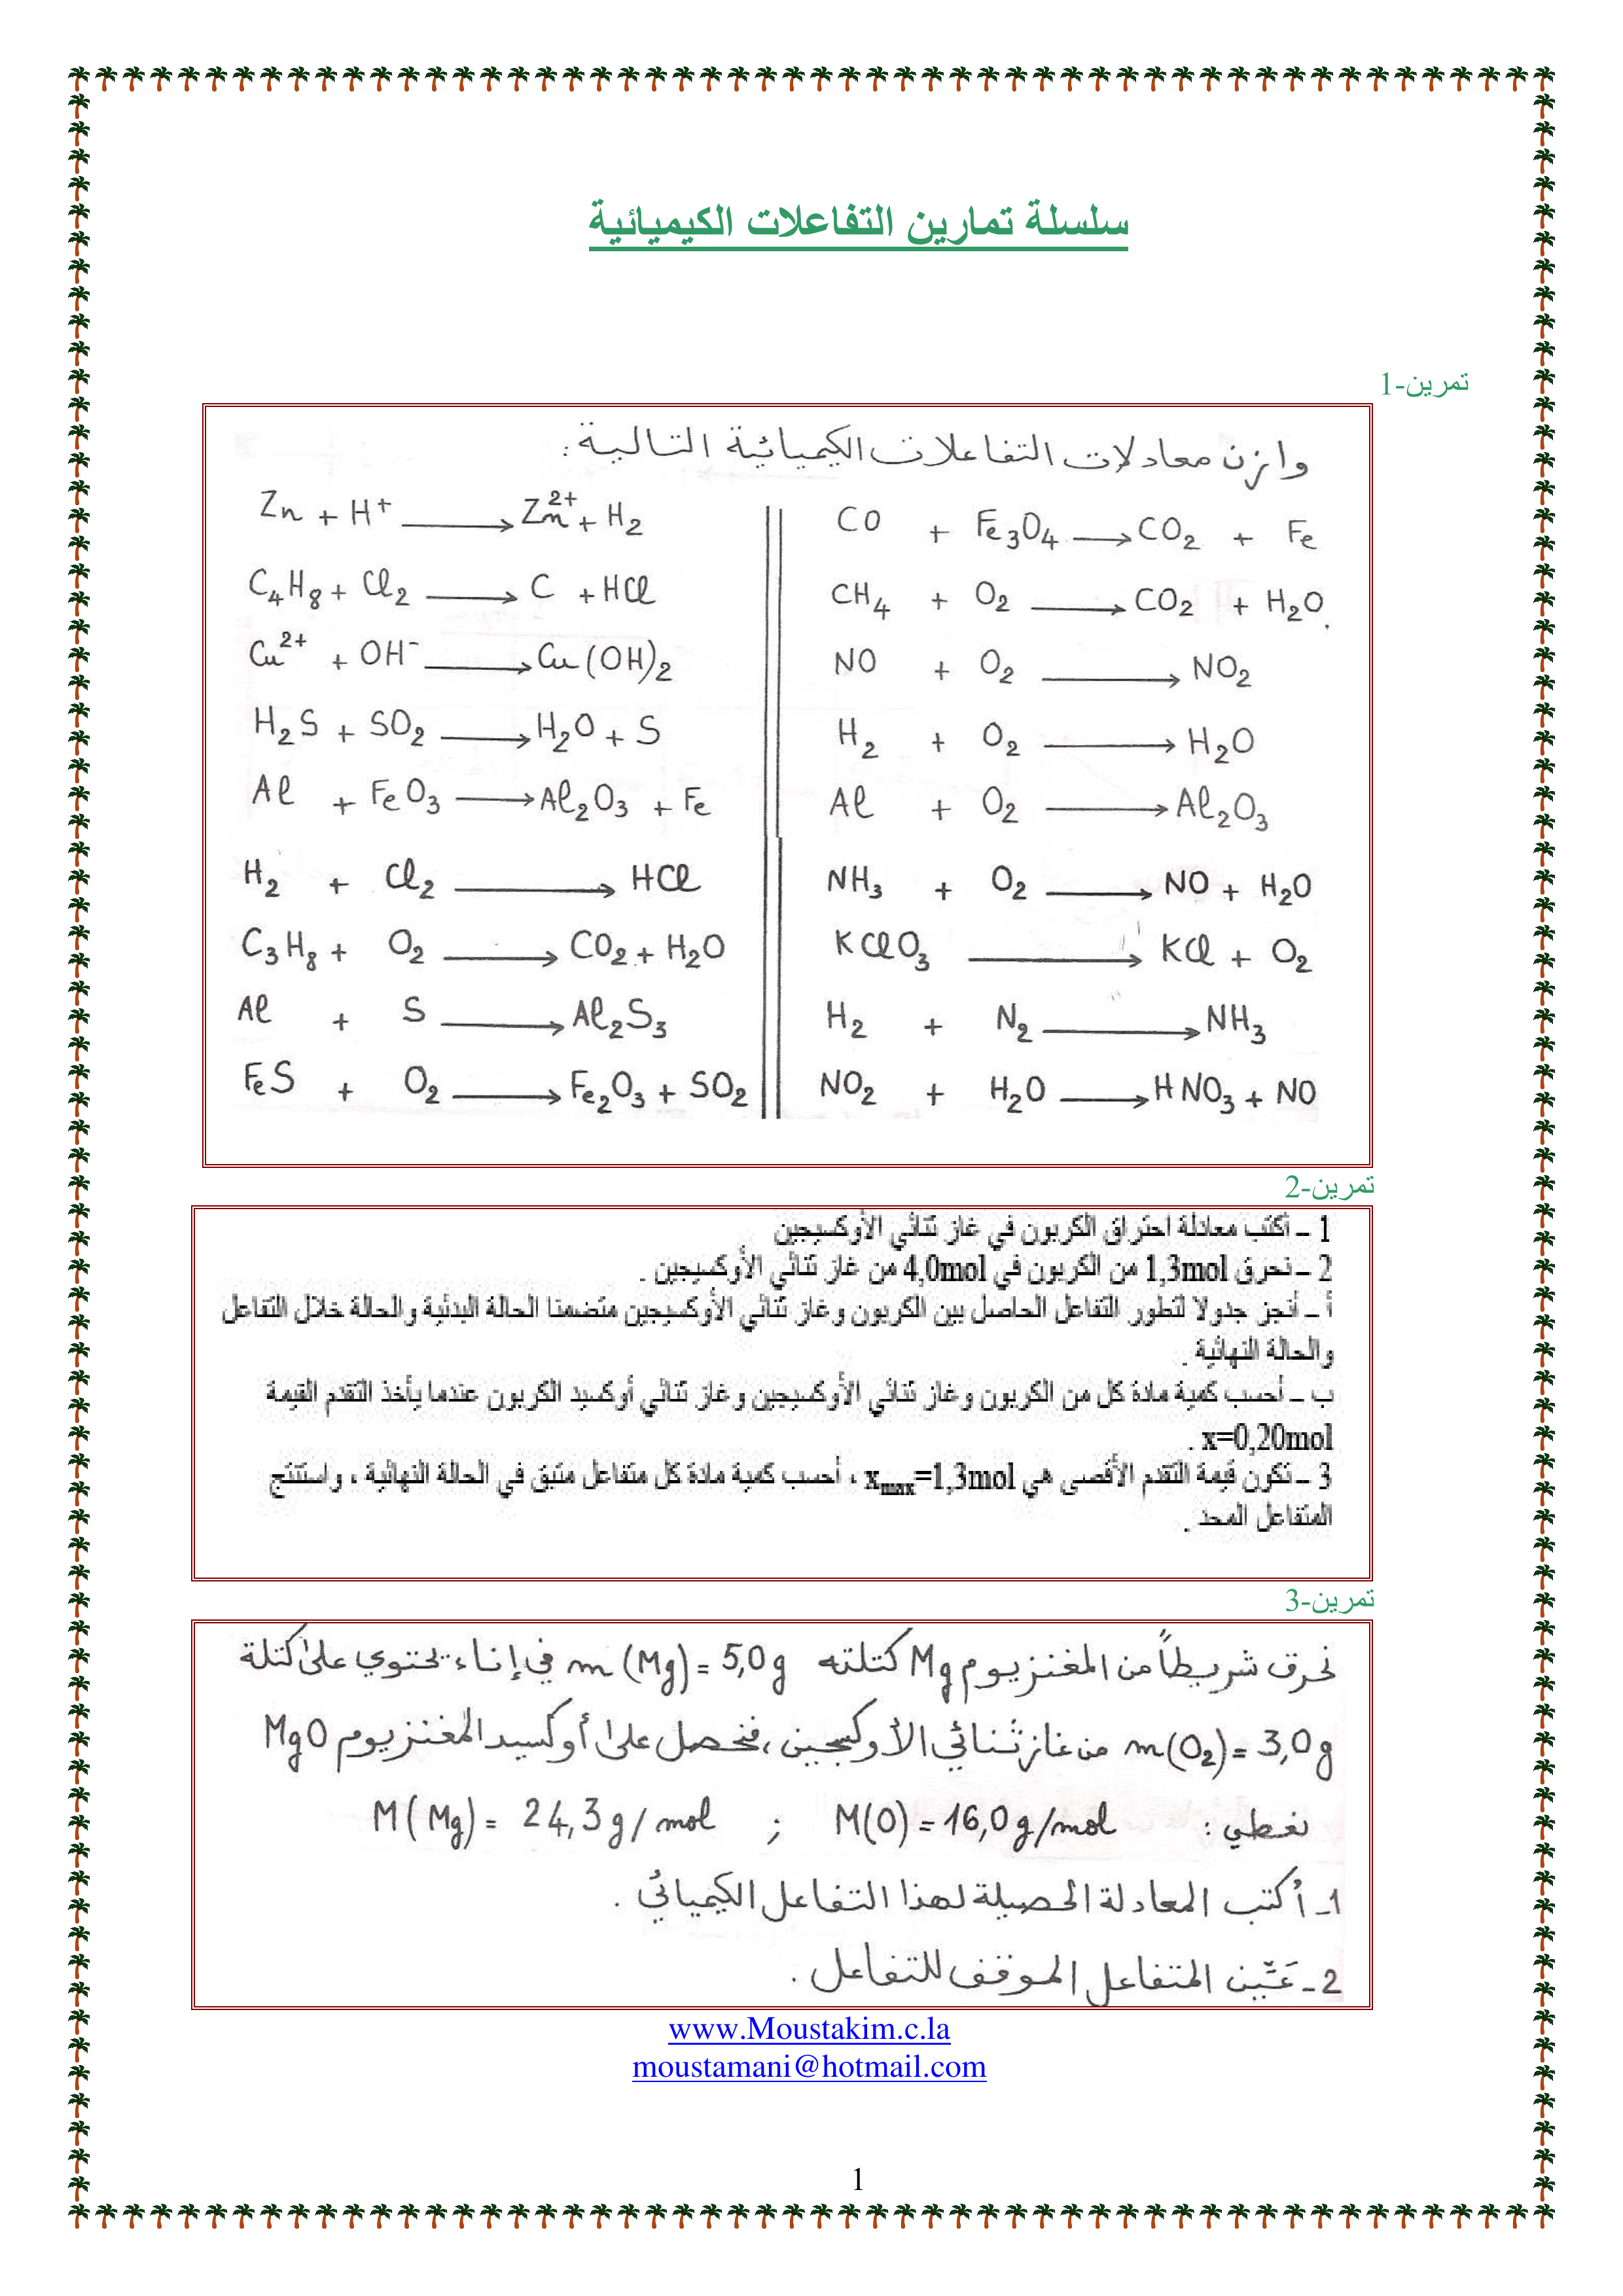 سلسلة تمارين التفاعلات الكيميائية
تمرين-1
وازن معادلات التفاعلات الكيميائية التالية :
Zn + H⁺ ⟶ Zn²⁺ + H₂
C₄H₈ + Cl₂ ⟶ C + HCl
Cu²⁺ + OH⁻ ⟶ Cu(OH)₂
H₂S + SO₂ ⟶ H₂O + S
Al + FeO₃ ⟶ Al₂O₃ + Fe
H₂ + Cl₂ ⟶ HCl
C₃H₈ + O₂ ⟶ CO₂ + H₂O
Al + S ⟶ Al₂S₃
FeS + O₂ ⟶ Fe₂O₃ + SO₂
CO + Fe₃O₄ ⟶ CO₂ + Fe
CH₄ + O₂ ⟶ CO₂ + H₂O.
NO + O₂ ⟶ NO₂
H₂ + O₂ ⟶ H₂O
Al + O₂ ⟶ Al₂O₃
NH₃ + O₂ ⟶ NO + H₂O
KClO₃ ⟶ KCl + O₂
H₂ + N₂ ⟶ NH₃
NO₂ + H₂O ⟶ HNO₃ + NO
تمرين-2
1 – أكتب معادلة احتراق الكربون في غاز ثنائي الأوكسيجين
2 – نحرق 1,3mol من الكربون في 4,0mol من غاز ثنائي الأوكسيجين .
أ – أنجز جدولا لتطور التفاعل الحاصل بين الكربون وغاز ثنائي الأوكسيجين متضمنا الحالة البدئية والحالة خلال التفاعل
والحالة النهائية .
ب – أحسب كمية مادة كل من الكربون وغاز ثنائي الأوكسيجين وغاز ثنائي أوكسيد الكربون عندما يأخذ التقدم القيمة
x=0,20mol .
3 – تكون قيمة التقدم الأقصى هي xₘₐₓ=1,3mol ، أحسب كمية مادة كل متفاعل متبق في الحالة النهائية ، واستنتج
المتفاعل المحد .
تمرين-3
نحرق شريطاً من المغنزيوم Mg كتلته m(Mg)= 5,0g في إناء يحتوي على كتلة
m(O₂)= 3,0g من غاز ثنائي الأوكسجين ، فنحصل على أوكسيد المغنزيوم MgO
نعطي : M(O)= 16,0g/mol ; M(Mg)= 24,3g/mol
1- أكتب المعادلة الحصيلة لهذا التفاعل الكيميائي .
2- عَيِّن المتفاعل الموقف للتفاعل .
www.Moustakim.c.la
moustamani@hotmail.com
1